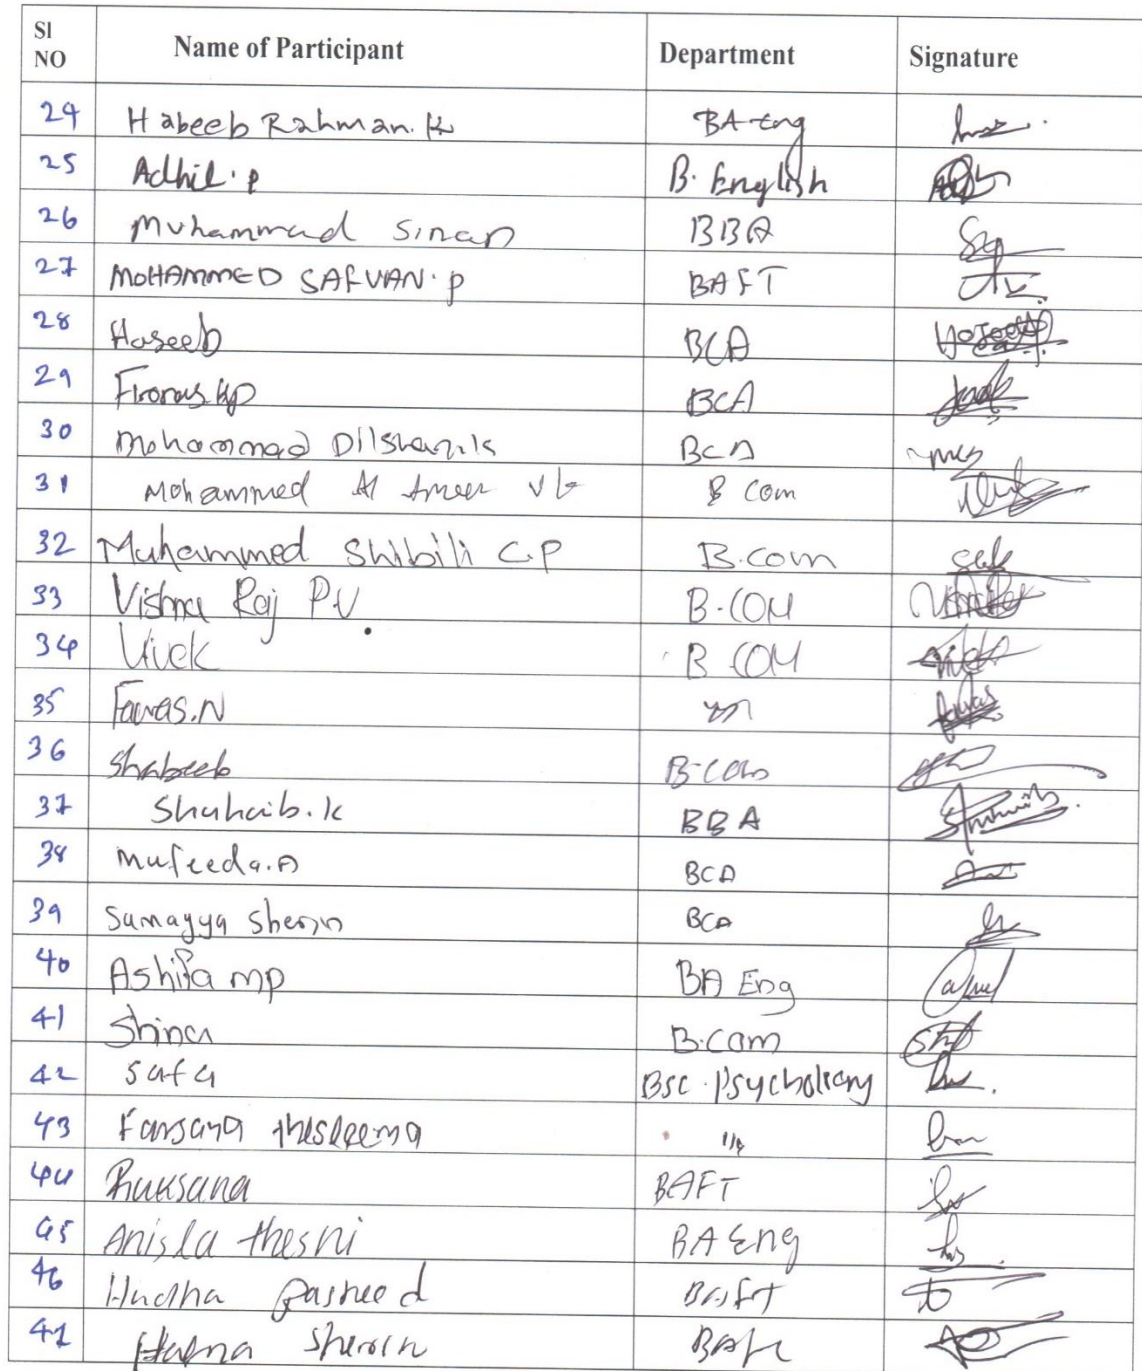 Sl NO Name of Participant Department Signature
24 Habeeb Rahman. K BA Eng
25 Adhil. P B. English
26 Muhammad Sinan BBA
27 MOHAMMED SAFVAN. P BAFT
28 Haseeb BCA
29 BCA
30 Mohammad Dilshan. k BCA
31 Mohammed Al Ameer B Com
32 Muhammed Shibili C.P B.com
33 Vishnu Raj P.V B.COM
34 Vivek B COM
35 Fawas.N
36 Shabeeb B.com
37 Shuhaib.k BBA
38 Mufeeda.A BCA
39 Sumayya Sherin BCA
40 Ashifa mp BA Eng
41 B.com
42 Safa Bsc.
43 Farsana thesleema
44 Ruksana BAFT
45 Anisla thesni BA Eng
46 Hudha Rasheed BAFT
47 Sherin